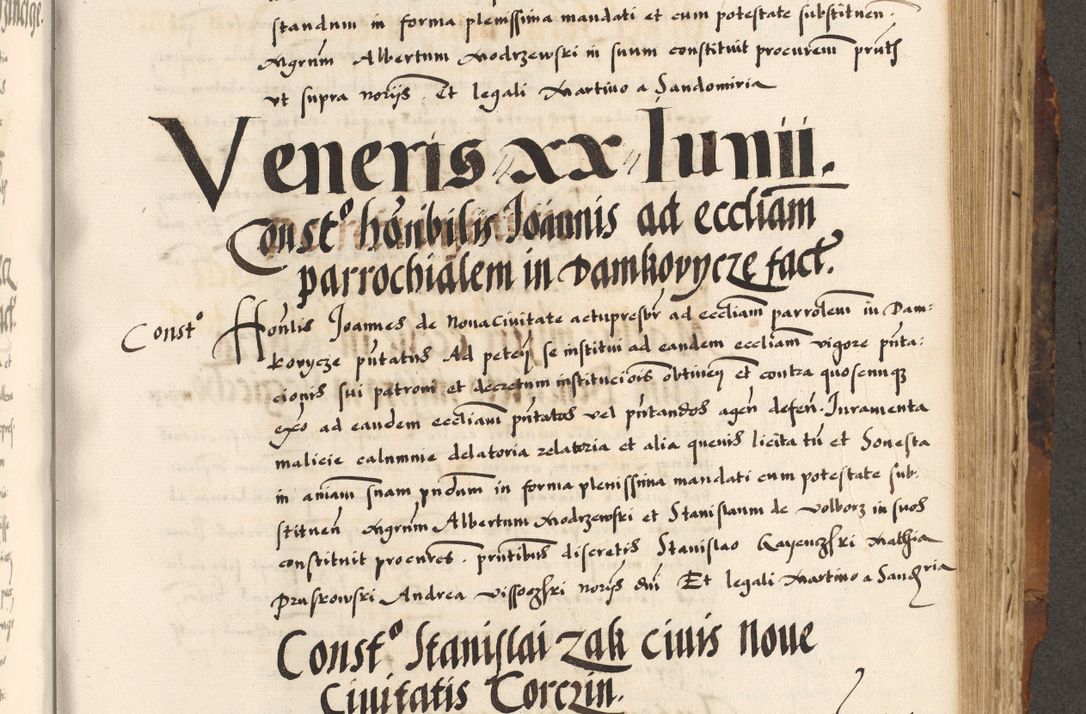 standum in forma plenissima mandati et cum potestate substituen.
Mgrum Albertum Modrzewski in suum constituit procurem pntˢ
vt supra norijs. Et legali Martino a Sandomiria
Veneris xx Iunii.
Constº honibilis Joannis ad eccliam
parrochialem in Damkovycze fact.
Constº Honlis Joannes de Nova Civitate actu presbr ad eccliam parrolem in Dam-
kovycze pntatus Ad peten se institui ad eandem eccliam vigore pnta-
cionis sui patroni et decretum institucionis obtinen et contra quoscunq
exo ad eandem eccliam pntatos vel pntandos agen defen. Iuramenta
malicie calumnie delatoria relatoria et alia quevis licita tn et honesta
in aniam suam pndum in forma plenissima mandati cum potestate sub-
stituen Mgrum Albertum Modrzewski et Stanislaum de Volborz in suos
constituit procures. pntibus discretis Stanislao Mathia
Pruskowski Andrea norijs dni Et legali Martino a Sandria
Constº Stanislai Zak civis Nove
Civitatis Corczin.